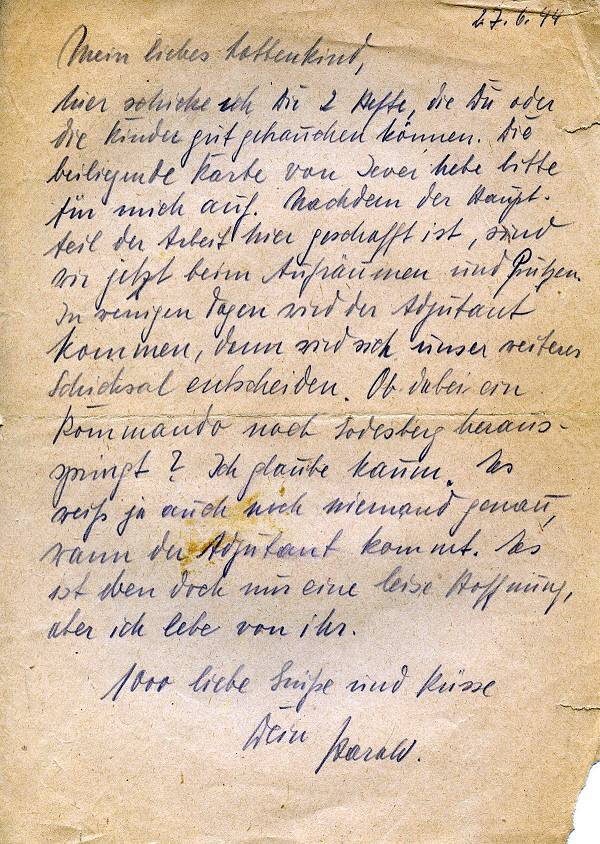 27.6.44
Mein liebes Lottenkind,
hier schicke ich Dir 2 Hefte, die Du oder
die Kinder gut gebrauchen können. Die
beiliegende Karte von hebe bitte
für mich auf. Nachdem der Haupt-
teil der Arbeit hier geschafft ist, sind
wir jetzt beim Aufräumen und Putzen.
In wenigen Tagen wird der Adjutant
kommen, dann wird sich unser weiteres
Schicksal entscheiden. Ob dabei ein
Kommando nach Godesberg heraus-
springt? Ich glaube kaum. Es
weiß ja auch noch niemand genau,
wann der Adjutant kommt. Es
ist eben doch nur eine leise Hoffnung,
aber ich lebe von ihr.
1000 liebe Grüße und Küsse
Dein Harald.